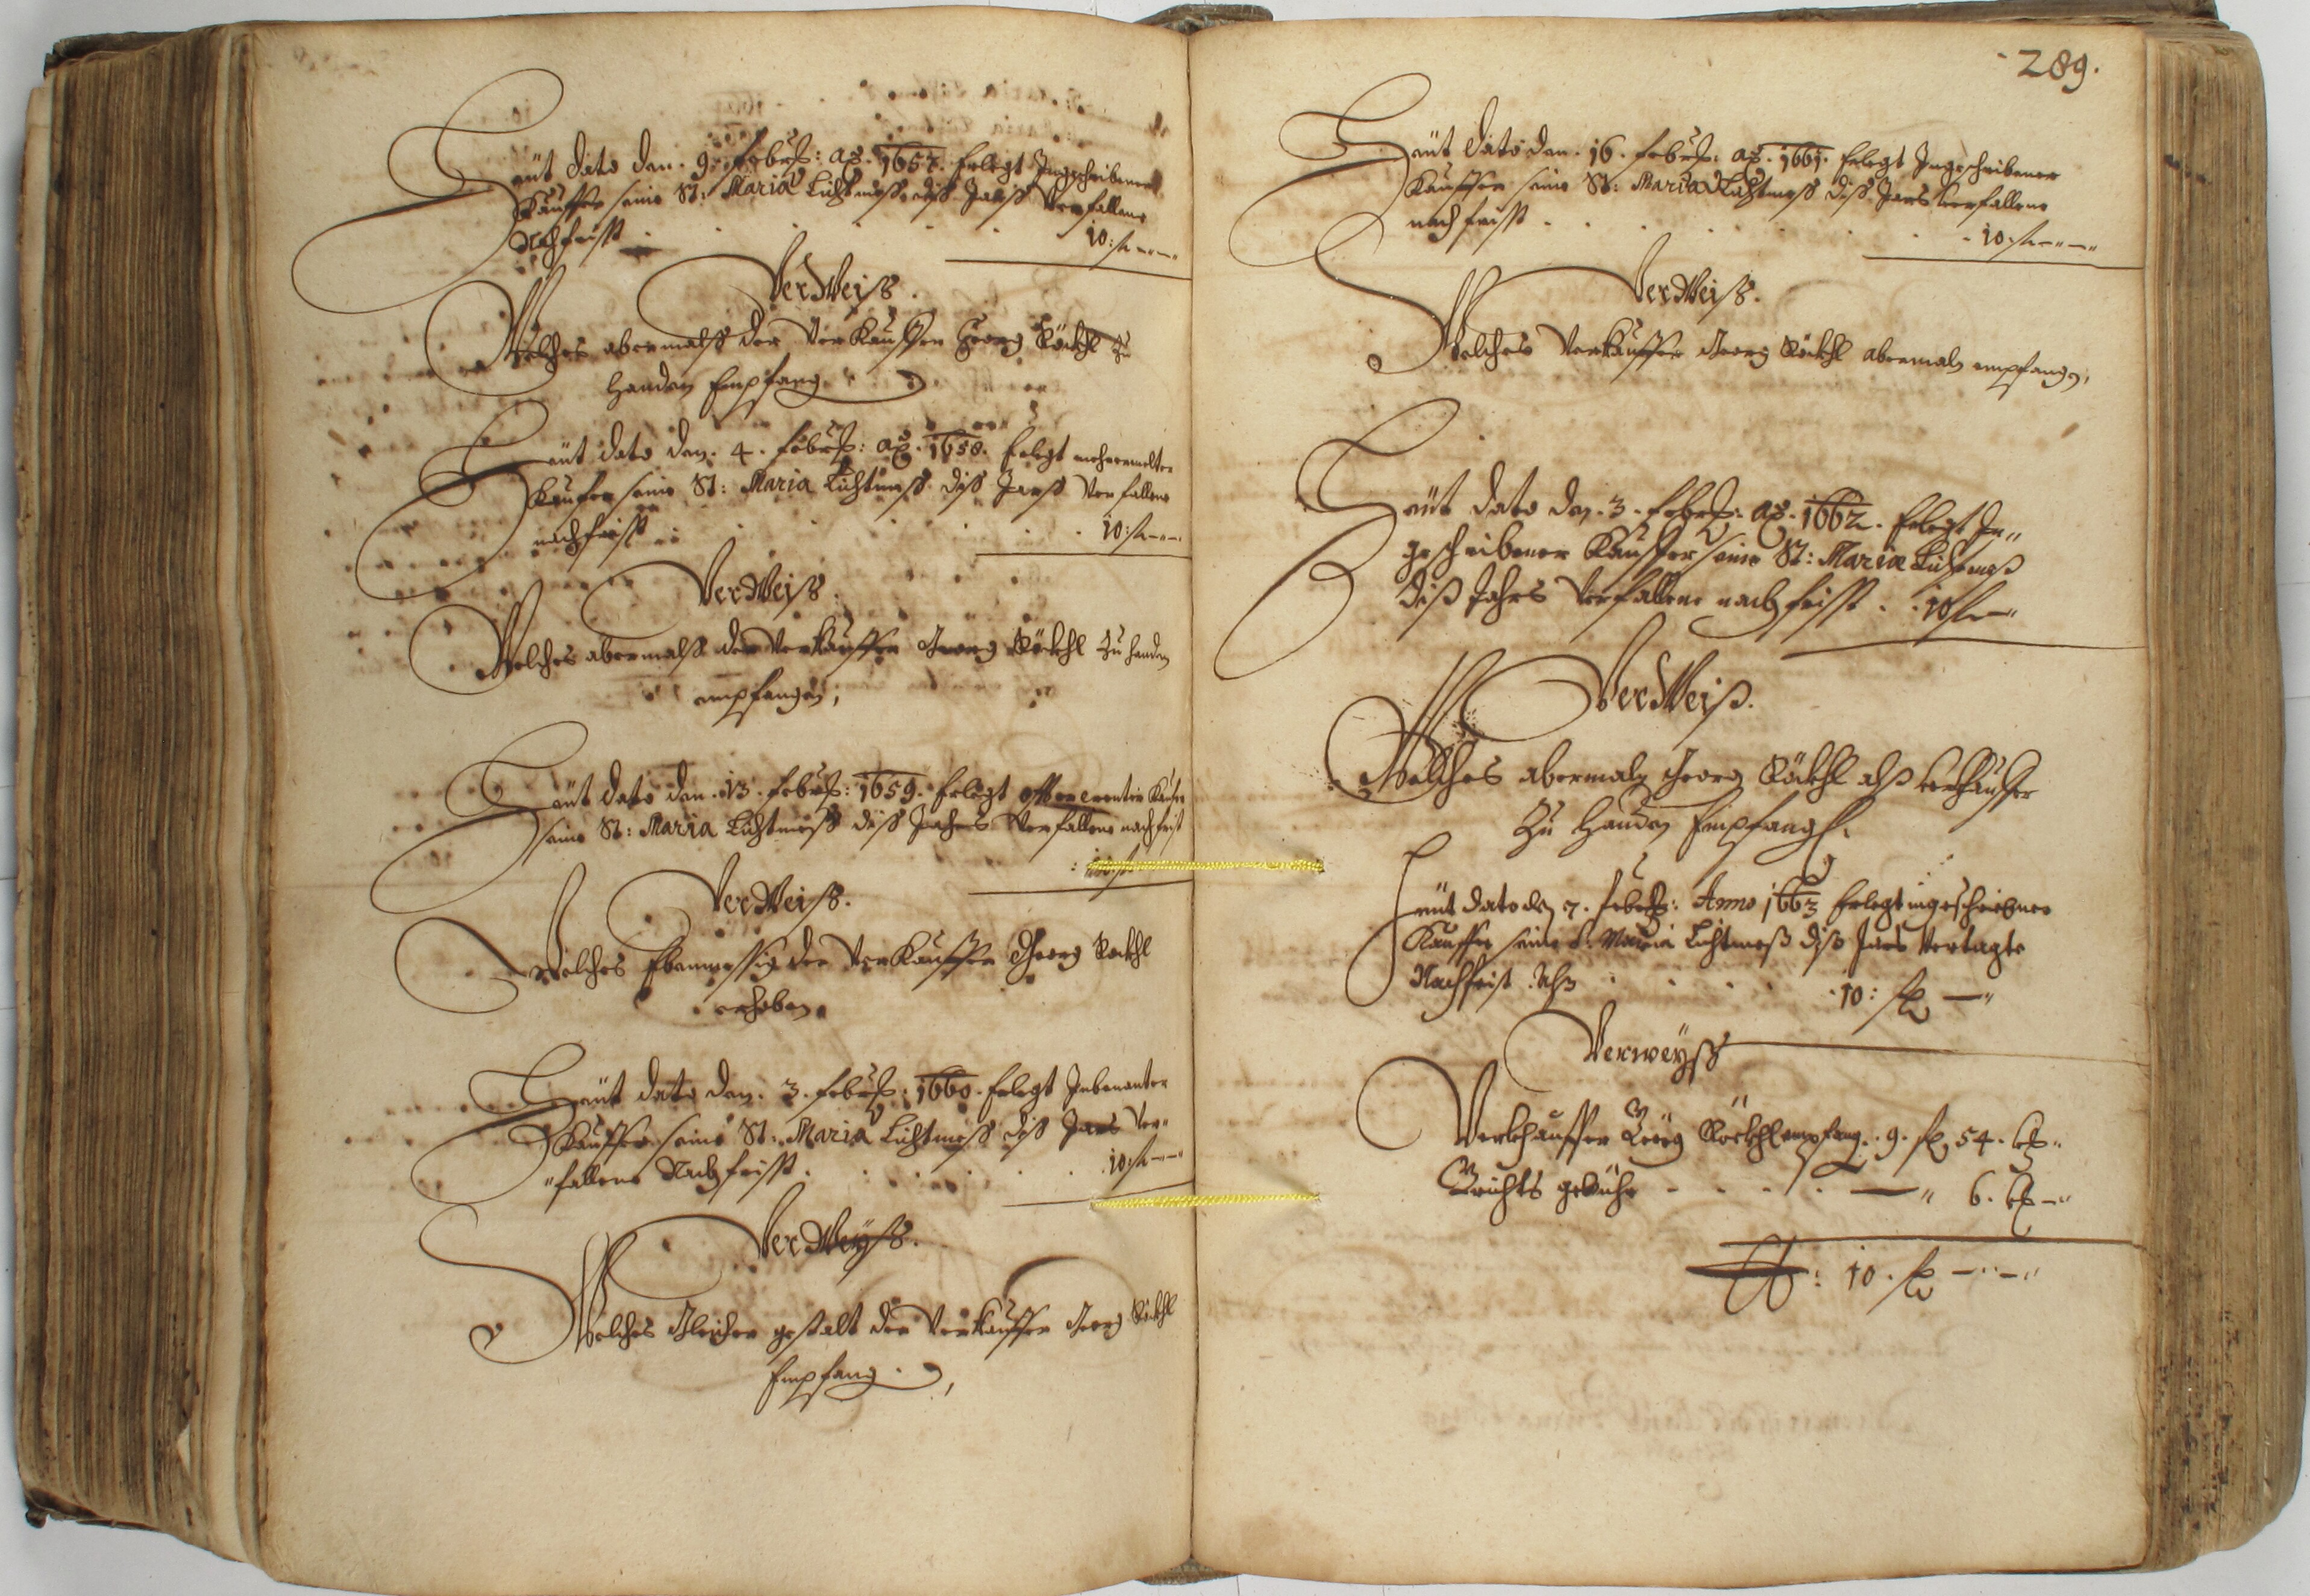 Heüt dato den. 9. Febrs: ao. 1657. Erlegt Ingeschribener
Kauffer seine St: Maria Liechtmess diss Jarss Verfallene
Nachfrisst . . . . . . 10: fl
VerWeiss.
Welches abermalss der Verkauffer Georg Röckhl Zu
Handen Empfang.
Heüt dato den. 4. Febrs: ao. 1658. Erlegt mehrermelter
Kaufer seine St: Maria Liechtmess diss Jarss Verfallene
nachfrisst . . . . . . 10: fl
VerWeiss.
Welches abermalss der Verkauffer Georg Röckhl Zu handen
empfangen;
Heüt dato den. 13. Febrs: 1659. Erlegt Kaufer
seine St: Maria Liechtmess diss Jahrs Verfallene nachfrist
VerWeiss.
Welches Ebenmessig der Verkauffer Georg Röckhl
erhoben.
Heüt dato den. 3. Febrs: 1660. Erlegt Inbenanter
Kauffer seine St: Maria Liechtmess diss Jars Ver„
„fallene Nachfrisst . . . . . 10: fl
VerWeyss.
Welches Gleicher gestalt der Verkauffer Georg Röckhl
Empfang.
289.
Heüt dato den. 16. Febrs: ao. 1661. Erlegt Ingeschribener
Kauffer seine St: Maria Liechtmess diss Jars Verfallene
nachfrisst . . . . . . 10: fl
VerWeiss.
Welches Verkauffer Georg Röckhl abermaln empfangen,
Heüt dato den. 3. Febrs: ao. 1662. Erlegt In„
geschribener Kauffer seine St: Maria Liechtmess
diss Jahrs Verfallene nachfrisst . . 10 fl
VerWeiss.
Wellches abermaln Georg Röckhl alss verkhauffer
Zu Handen Empfangen.
Heüt dato den 7. Febrs: Anno 1663 Erlegt ingeschribner
Kauffer seine S. Maria Liechtmess diss Jars Vertagte
Nachfrist . . . . . 10: fl
Verweyss
Verkhauffer Georg Röckhl empfang. 9. fl 54. kr
Grichts gebühr . . . . 6. kr
10. fl